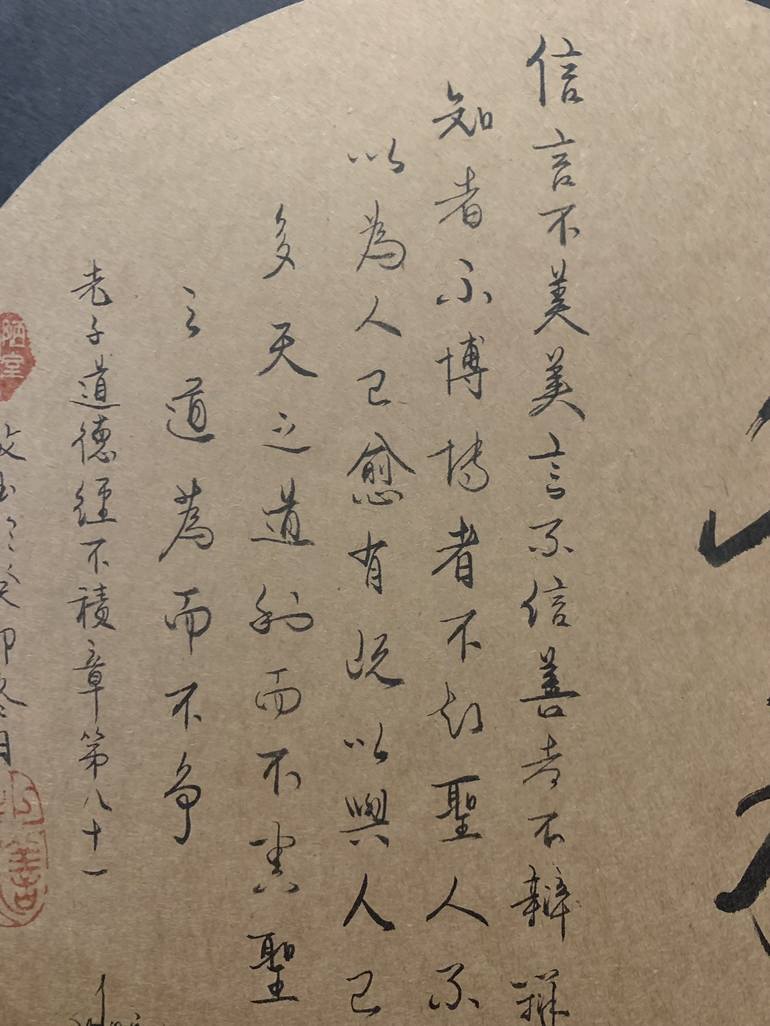 信言不美美言不信善者不辯辯
知者不博博者不知聖人不
以為人己愈有既以與人己
多天之道利而不害聖
之道為而不争
老子道德經不積章第八十一
癸卯冬月